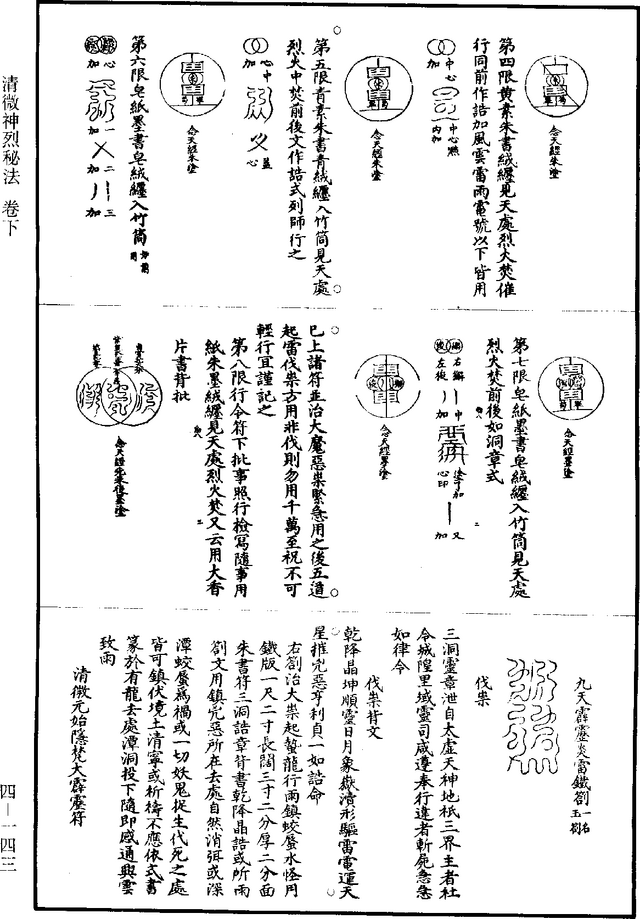 清微神烈秘法　卷下
四—一四三
念天經朱塗
第四限黃素朱書絨纏見天處烈火焚催
行同前作詰加風雲雷雨電號以下皆用
中心
加
中心點
內加
念天經朱塗
第五限青素朱書青絨纏入竹筒見天處
烈火中焚前後文作詰式列師行之
心中
加
蓋
心
念天經朱塗
第六限皂紙墨書皂絨纏入竹筒
心
加
一
加
二
加
三
加
念天經墨塗
第七限皂紙墨書皂絨纏入竹筒見天處
烈火焚前後如洞章式
右
左
中
加
心印
又
加
念天經墨塗
已上諸符並治大魔惡祟緊急用之後五道
起雷伐祟方用非伐則勿用千萬至祝不可
輕行宜謹記之
第八限行令符下批事照行檢寫隨事用
紙朱墨絨纏見天處烈火焚又云用大香
片書背批
念天經先朱後墨塗
九天霹靂炎雷鐵劄
伐祟
三洞靈章泄自太虛天神地祇三界主者社
令城隍里域靈司咸遵奉行違者斬死急急
如律令
伐祟背文
乾降晶坤順靈日月象嶽瀆形驅雷電運天
星摧兇惡亨利貞一如詰命
右劄治大祟起蟄龍行雨鎮蛟蜃水怪用
鐵版一尺二寸長闊三寸二分厚二分面
朱書符三洞詰章背書乾降晶詰或所雨
劄文用鎮兇惡所在去處自然消弭或深
潭蛟蜃爲禍或一切妖鬼捉生代死之處
皆可鎮伏境土清寧或祈禱不應依式書
篆於有龍去處潭洞投下隨即感通興雲
致雨
清微元始隱梵大霹靂符